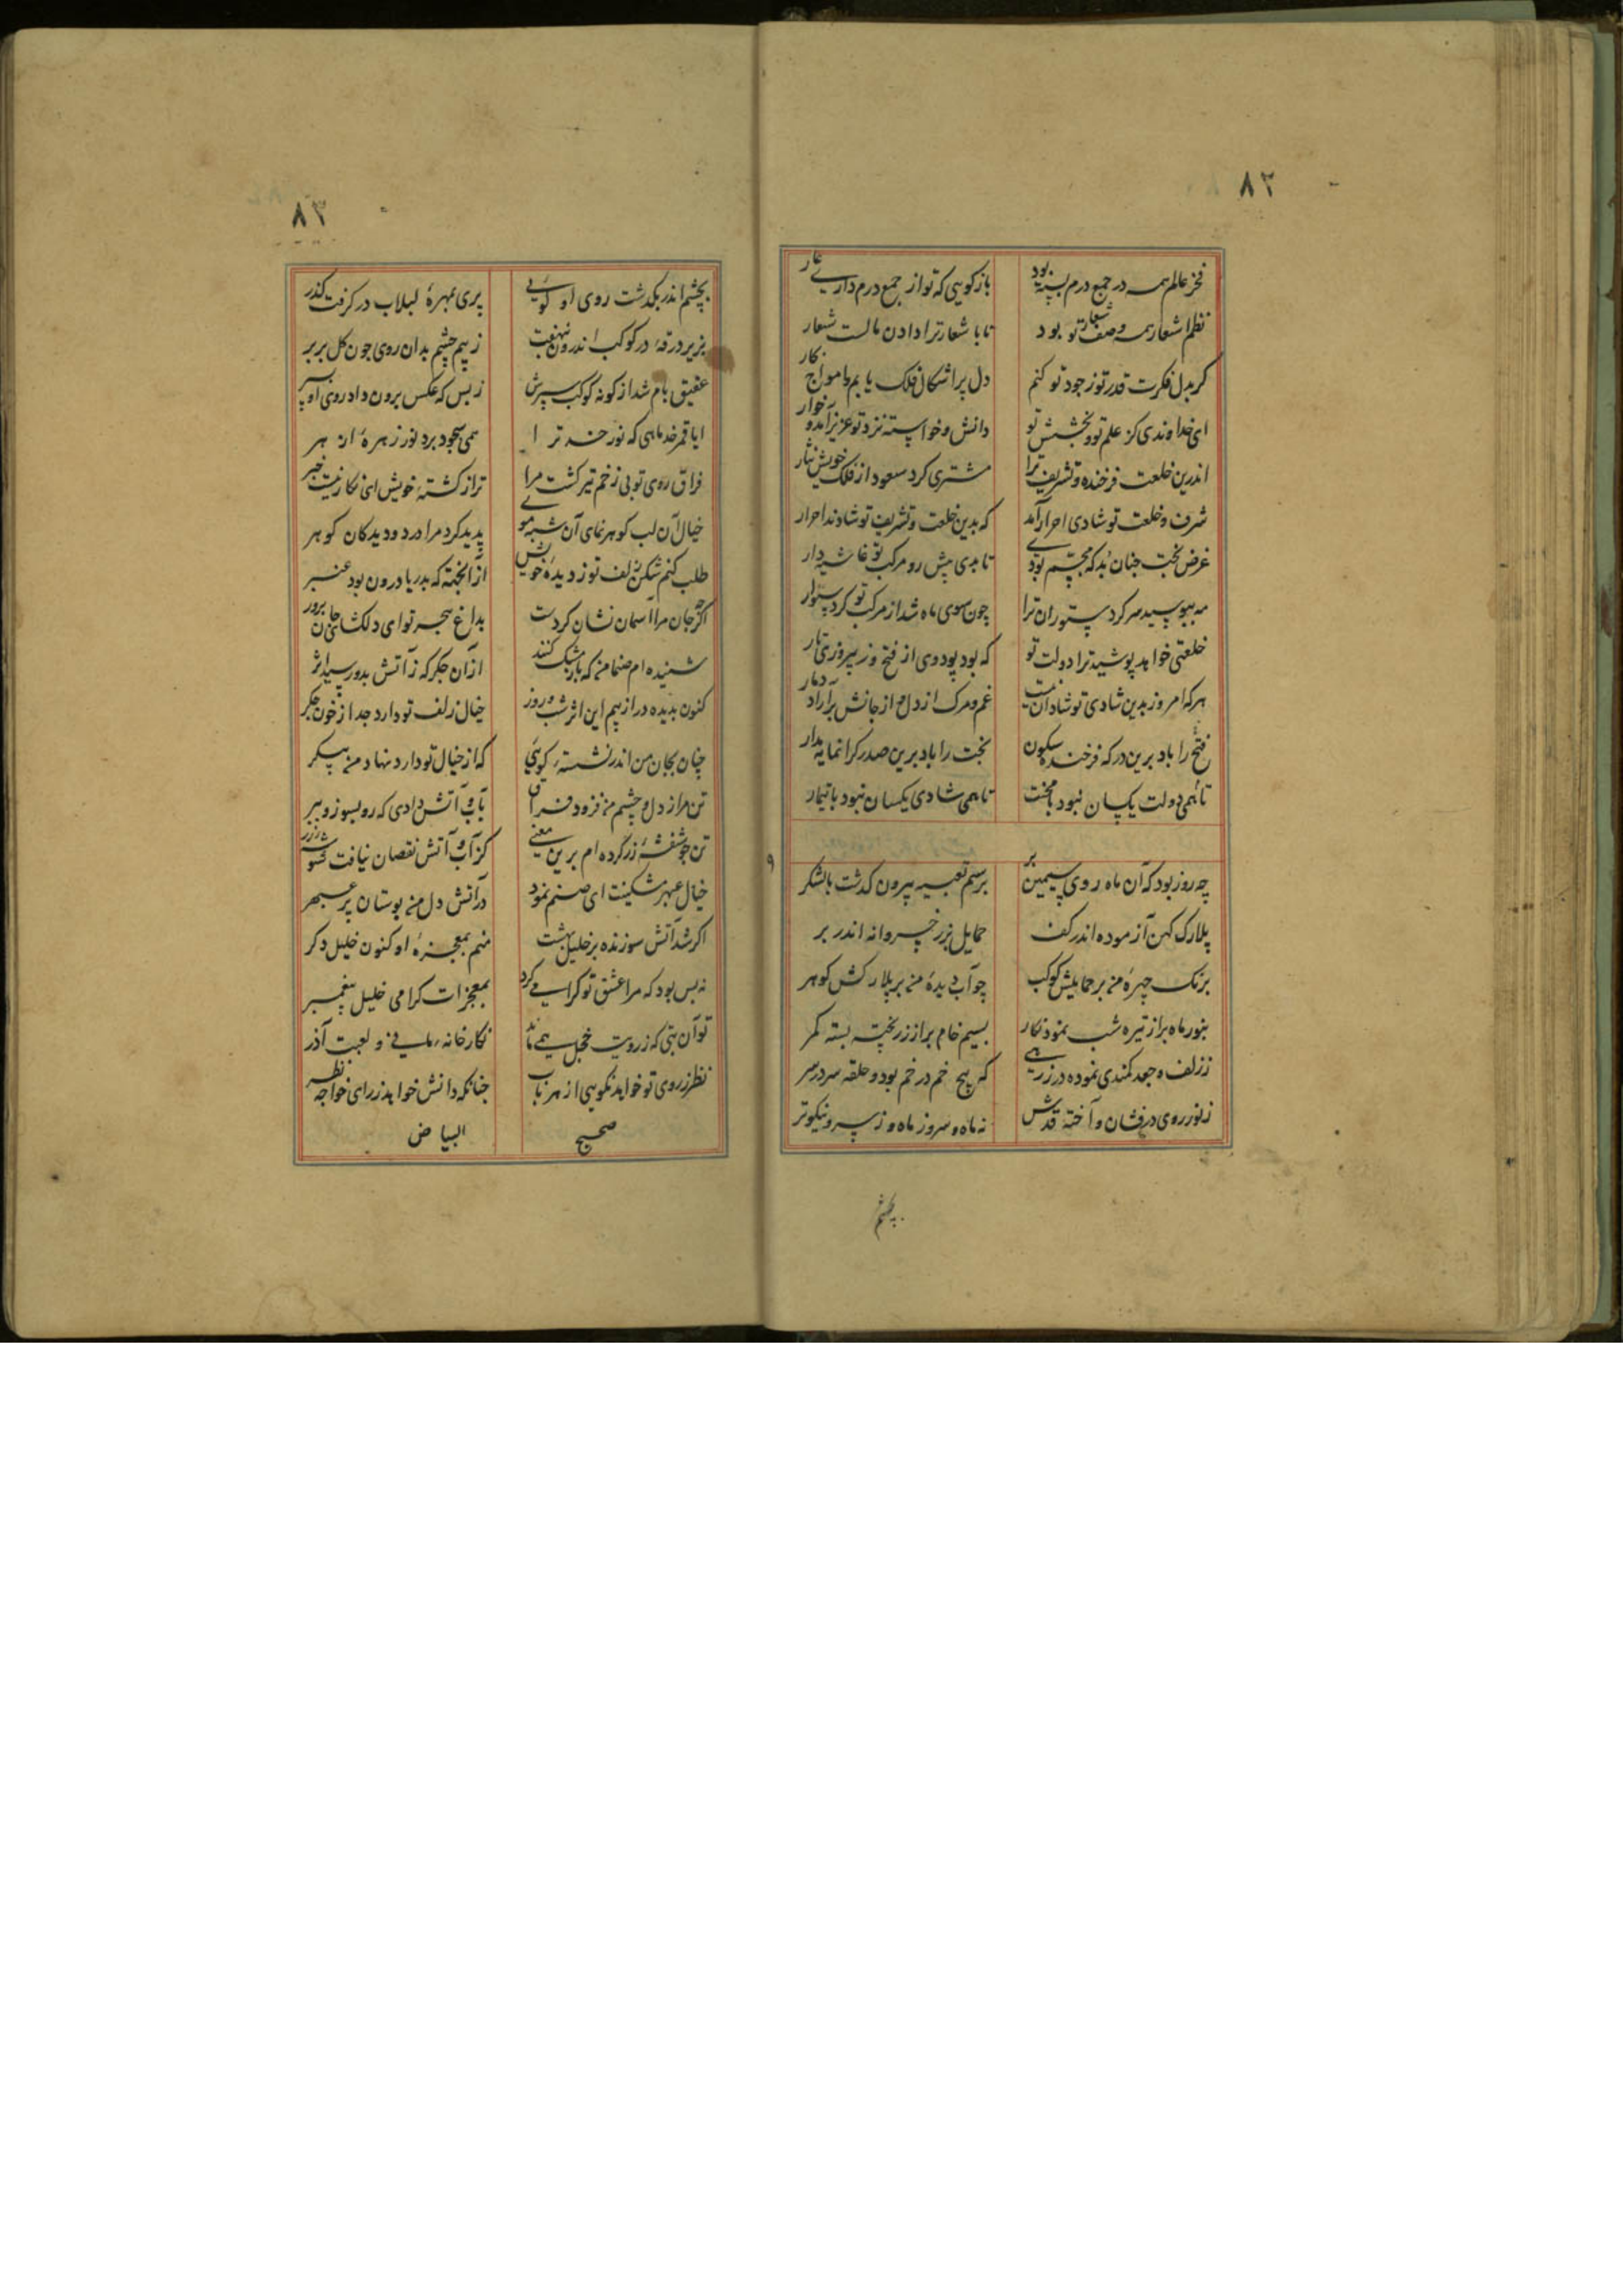 ۸۲
فخر عالم همه در جمع درم بسته بود باز کویی که تو از جمع درم داری عار
نظم اشعار همه وصف شعار تو بود تا با شعار ترا دادن مالست شعار
کر بدل فکرت قدر تو ز جود تو کنم دل پر اشکال فلک یابم و امواج
ای خداوندی کز علم تو و بخشش تو دانش و خواسته نزد تو عزیز آمد و خوار
اندرین خلعت فرخنده و تشریف ترا مشتری کرد سعود از فلک خویش نثار
شرف و خلعت تو شادی احرار آمد که بدین خلعت و تشریف تو شادند احرار
غرض بخت جنان بد که مجسم بودی تا بدی پیش رو مرکب تو غاشیه دار
مه ببوسید سر کرد ستوران ترا چون سوی ماه شد از مرکب تو کرد ستوار
خلعتی خواهد پوشید ترا دولت تو که بود پود وی از فتح و ز پیروزی تار
هر که امروز بدین شادی تو شادان نیست غم و مرک از دل و از جانش برآراد دمار
فتح را باد برین درکه فرخنده سکون بخت را باد برین صدر کرانمایه مدار
تا همی دولت یکسان نبود با محنت تا همی شادی یکسان نبود با تیمار
چه روز بود که آن ماه روی سیمین بر برسم تعبیه بیرون کذشت با لشکر
پلارک کهن آزموده اندر کف حمایل بزر خسروانه اندر بر
برنک چهرهٔ من بر حمایلش کوکب چو آب دیدهٔ من بر پلارکش کوهر
بنور ماه بر از تیره شب نموذ نکار بسیم خام بر از زر پخته بسته کمر
ز زلف و جعد کمندی نموده در زرهی که پیچ خم در خم بود و حلقه سر در سر
ز نور روی درفشان و آخته قدش نه ماه و سرو ز ماه و ز سرو نیکوتر
بچشم
۸۳
بچشم اندر بکذشت روی او کویی پری بمهرهٔ لبلاب در کرفت کذر
بزیر درقه در کوکب اندرون نهفت ز بیم چشم بدان روی جون کل بربر
عقیق بام شد از کونه کوکب سپرش ز بس که عکس برون داد روی او
ایا قمر خد ماهی که نور خد ترا همی سجود برد نور زهرهٔ ازهر
فراق روی تو بی زخم تیر کشت مرا ترا ز کشتهٔ خویش ای نکار نیست خبر
خیال آن لب کوهر نمای آن شبه موی پدید کرد مرا در دو دیدکان کوهر
طلب کنم شکن زلف تو ز دیدهٔ خویش از آنجهته که بدریا درون بود عنبر
اکر چه جان مرا آسمان نشان کردست بداغ هجر تو ای دلکشای جان پرور
شنیده ام صنما من که باز مشک کنند از آن جکر که ز آتش بدو رسید اثر
کنون بدیده در از بیم این اثر شب و روز خیال زلف تو دارد جدا ز خون جکر
چنان بجان من اندر نشستهٔ کویی که از خیال تو دارد نهاد من پیکر
تن مرا ز دل و چشم من فزود فراق بآب و آتش دادی که رو بسوز و ببر
تن جو شفشهٔ زر کرده ام برین معنی کز آب و آتش نقصان نیافت شوشهٔ زر
خیال عبهر مشکینت ای صنم نمود در آتش دل من بوستان پر عبهر
اکر شد آتش سوزنده بر خلیل بهشت منم بمعجزهٔ او کنون خلیل دکر
نه بس بود که مرا عشق تو کرامی کرد بمعجزات کرامی خلیل پیغمبر
تو آن بتی که ز رویت خجل همی ماند نکارخانهٔ مانی و لعبت آذر
نظر ز روی تو خواهد نکویی از هر باب جنانکه دانش خواهد ز رای خواجه نظر
صحیح البیاض